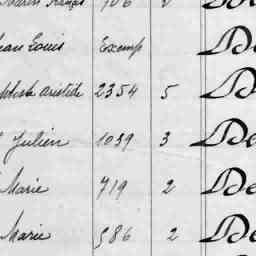 Louis Exemp
Aristide 2354 5 De
Julien 1039 3 De
Marie 719 2 De
Marie 586 2 De